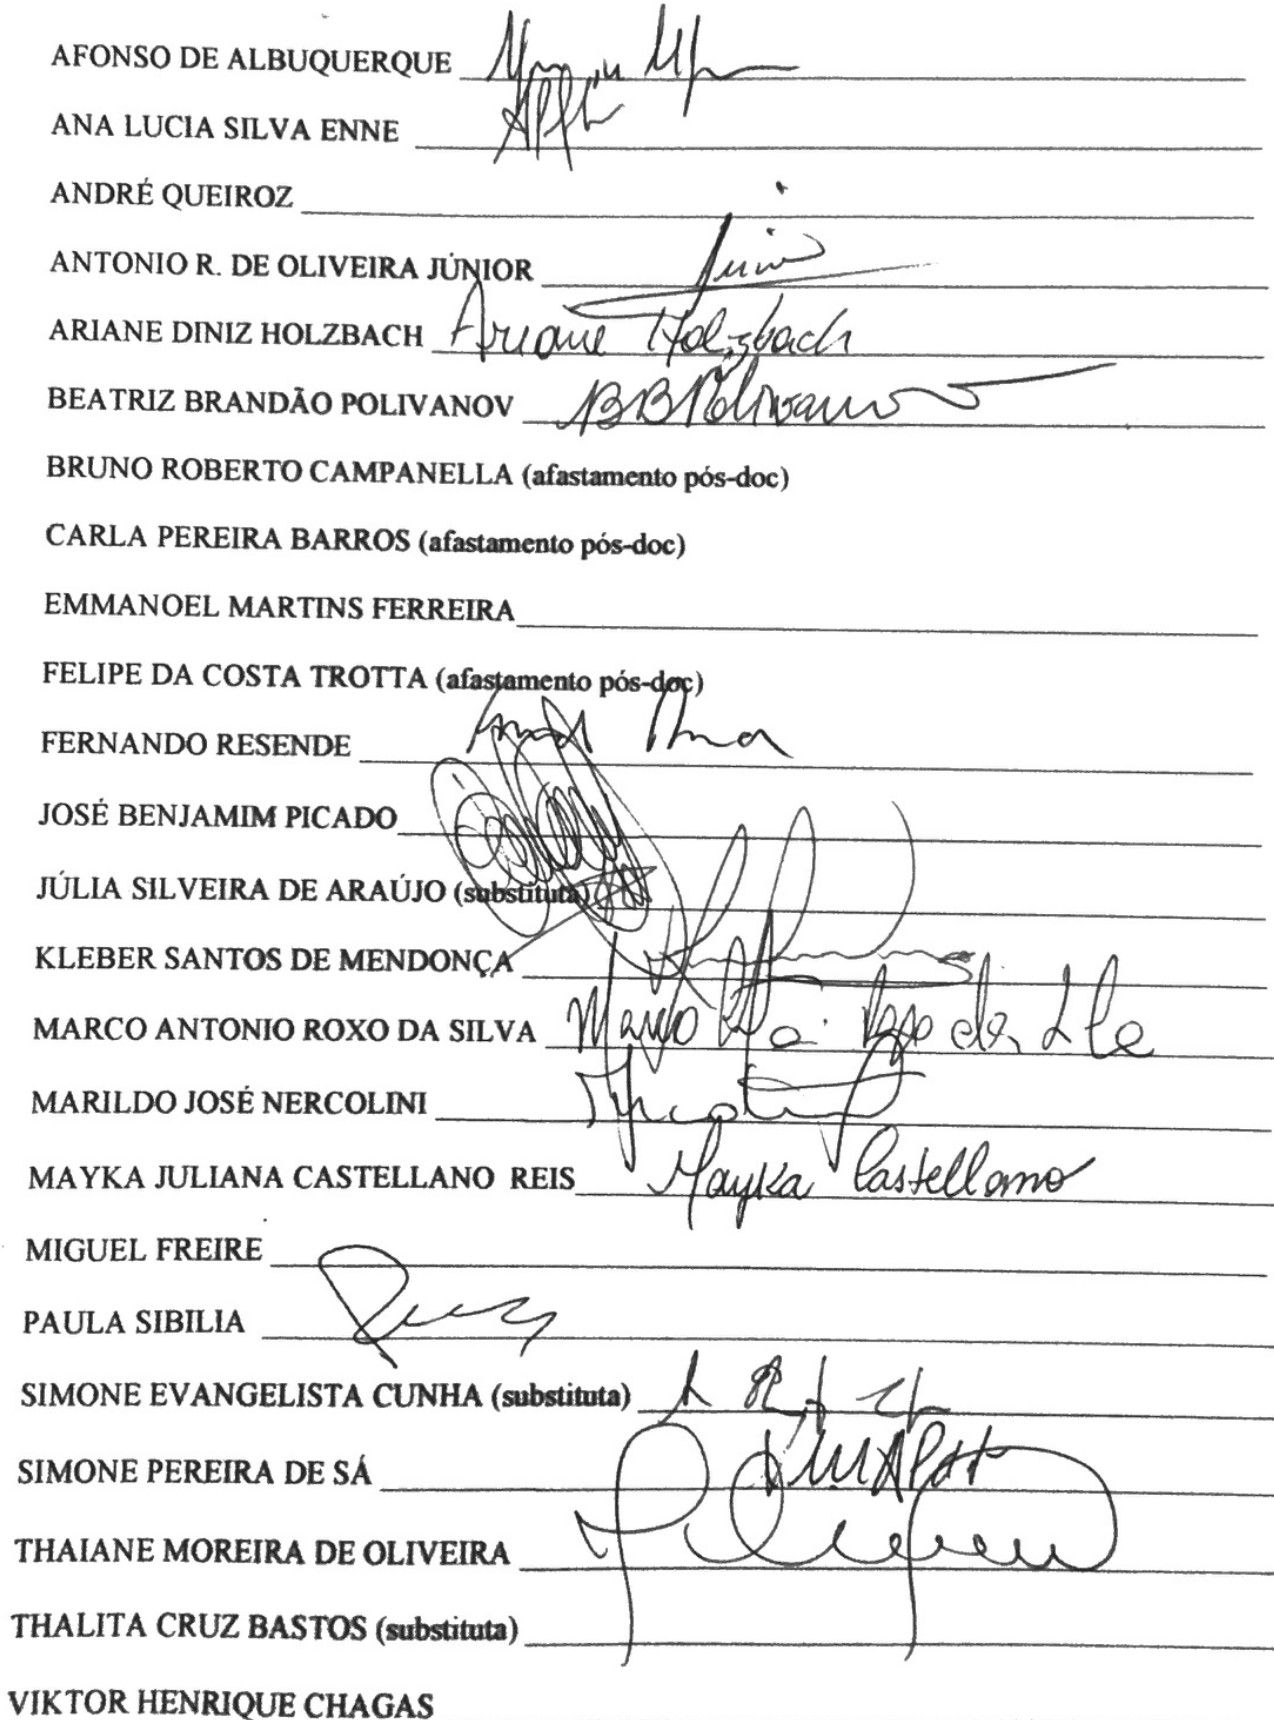 AFONSO DE ALBUQUERQUE
ANA LUCIA SILVA ENNE
ANDRÉ QUEIROZ
ANTONIO R. DE OLIVEIRA JÚNIOR
ARIANE DINIZ HOLZBACH Ariane Holzbach
BEATRIZ BRANDÃO POLIVANOV BBPolivanov
BRUNO ROBERTO CAMPANELLA (afastamento pós-doc)
CARLA PEREIRA BARROS (afastamento pós-doc)
EMMANOEL MARTINS FERREIRA
FELIPE DA COSTA TROTTA (afastamento pós-doc)
FERNANDO RESENDE
JOSÉ BENJAMIM PICADO
JÚLIA SILVEIRA DE ARAÚJO (substituta)
KLEBER SANTOS DE MENDONÇA
MARCO ANTONIO ROXO DA SILVA
MARILDO JOSÉ NERCOLINI
MAYKA JULIANA CASTELLANO REIS Mayka Castellano
MIGUEL FREIRE
PAULA SIBILIA
SIMONE EVANGELISTA CUNHA (substituta)
SIMONE PEREIRA DE SÁ
THAIANE MOREIRA DE OLIVEIRA
THALITA CRUZ BASTOS (substituta)
VIKTOR HENRIQUE CHAGAS